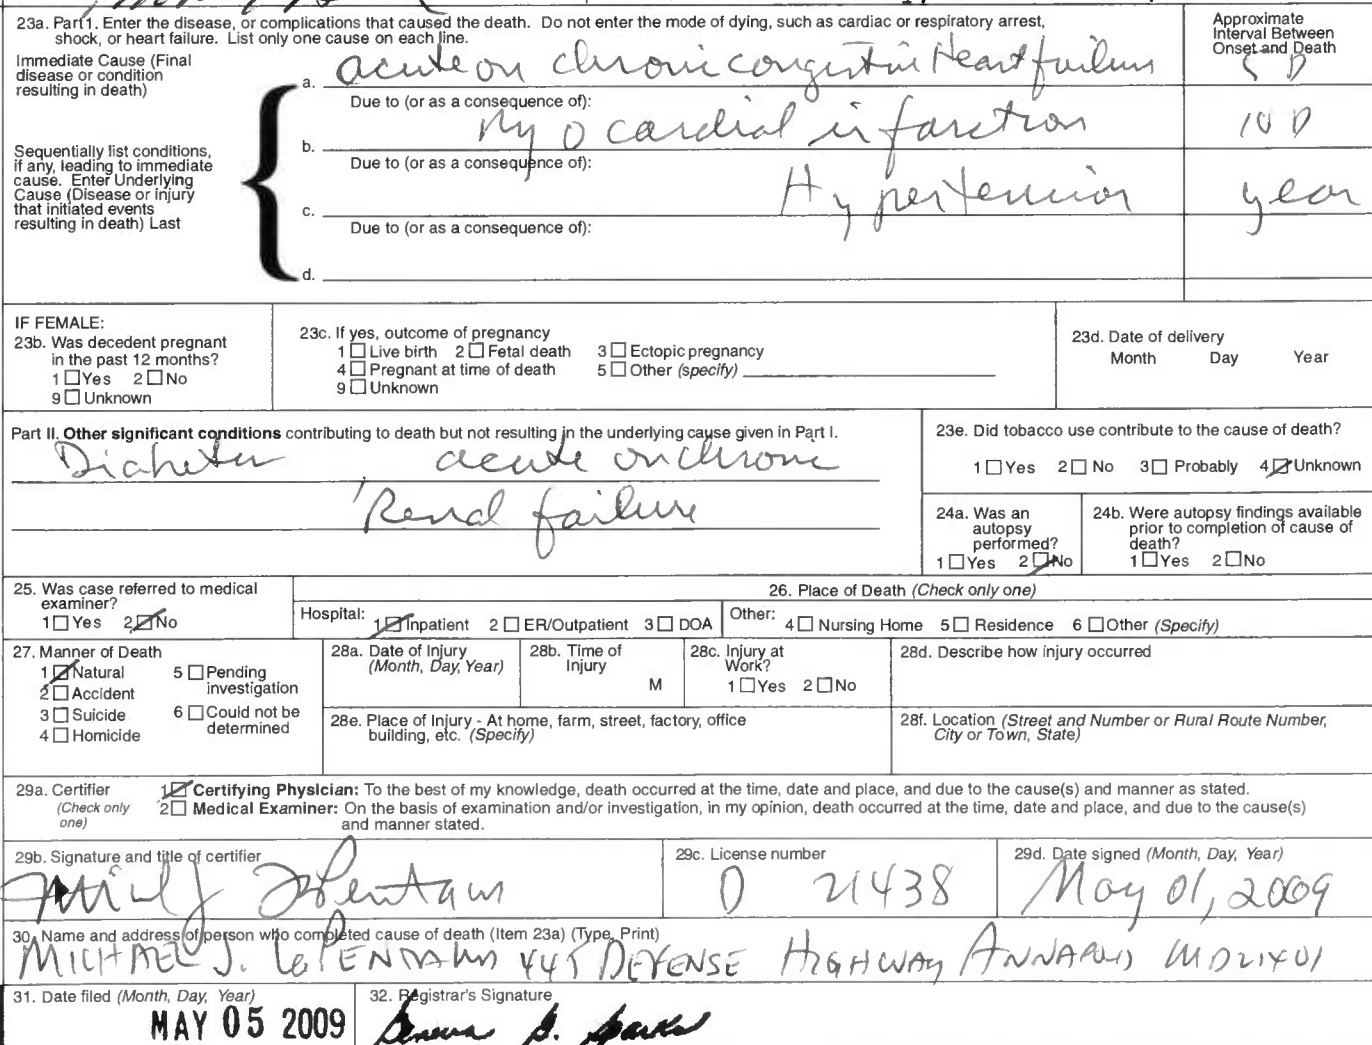 23a. Part 1. Enter the disease, or complications that caused the death. Do not enter the mode of dying, such as cardiac or respiratory arrest,
shock, or heart failure. List only one cause on each line.
Approximate
Interval Between
Onset and Death
Immediate Cause (Final
disease or condition
resulting in death)
a. acute on chronic congestive Heart failure 5 D
Due to (or as a consequence of):
b. Myocardial infarction 10 D
Sequentially list conditions,
if any, leading to immediate
cause. Enter Underlying
Cause (Disease or injury
that initiated events
resulting in death) Last
Due to (or as a consequence of):
c. Hypertension year
Due to (or as a consequence of):
d.
IF FEMALE:
23b. Was decedent pregnant
in the past 12 months?
1 Yes 2 No
9 Unknown
23c. If yes, outcome of pregnancy
1 Live birth 2 Fetal death 3 Ectopic pregnancy
4 Pregnant at time of death 5 Other (specify)
9 Unknown
23d. Date of delivery
Month Day Year
Part II. Other significant conditions contributing to death but not resulting in the underlying cause given in Part I.
Diabetes, acute on chronic
Renal failure
23e. Did tobacco use contribute to the cause of death?
1 Yes 2 No 3 Probably 4 Unknown
24a. Was an
autopsy
performed?
1 Yes 2 No
24b. Were autopsy findings available
prior to completion of cause of
death?
1 Yes 2 No
25. Was case referred to medical
examiner?
1 Yes 2 No
26. Place of Death (Check only one)
Hospital: 1 Inpatient 2 ER/Outpatient 3 DOA Other: 4 Nursing Home 5 Residence 6 Other (Specify)
27. Manner of Death
1 Natural
2 Accident
3 Suicide
4 Homicide
5 Pending
investigation
6 Could not be
determined
28a. Date of Injury
(Month, Day, Year)
28b. Time of
Injury
M
28c. Injury at
Work?
1 Yes 2 No
28d. Describe how injury occurred
28e. Place of Injury - At home, farm, street, factory, office
building, etc. (Specify)
28f. Location (Street and Number or Rural Route Number,
City or Town, State)
29a. Certifier
(Check only
one)
1 Certifying Physician: To the best of my knowledge, death occurred at the time, date and place, and due to the cause(s) and manner as stated.
2 Medical Examiner: On the basis of examination and/or investigation, in my opinion, death occurred at the time, date and place, and due to the cause(s)
and manner stated.
29b. Signature and title of certifier
29c. License number
D 21438
29d. Date signed (Month, Day, Year)
May 01, 2009
30. Name and address of person who completed cause of death (Item 23a) (Type, Print)
MICHAEL J. 445 DEFENSE HIGHWAY ANNAPOLIS MD 21401
31. Date filed (Month, Day, Year)
MAY 05 2009
32. Registrar's Signature